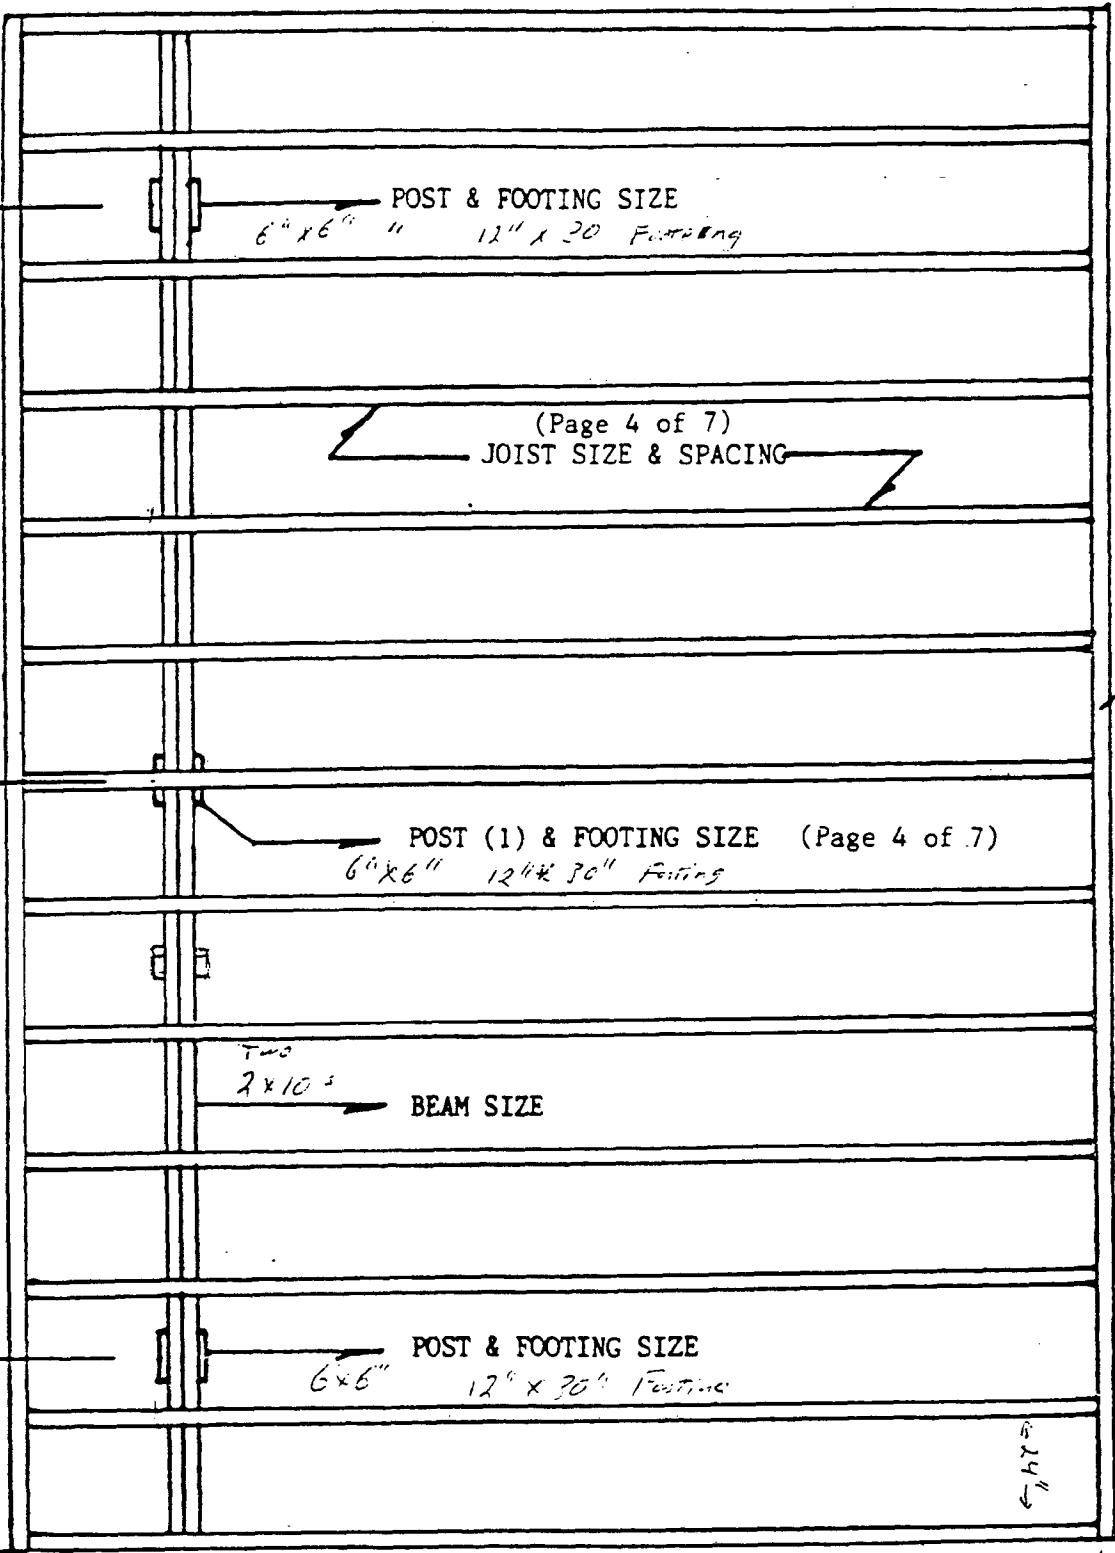 POST & FOOTING SIZE
6" x 6" " 12" x 30 Footing
(Page 4 of 7)
JOIST SIZE & SPACING
POST (1) & FOOTING SIZE (Page 4 of 7)
6" x 6" 12" x 30" Footing
Two
2 x 10 s
BEAM SIZE
POST & FOOTING SIZE
6 x 6" 12" x 30" Footing
24"